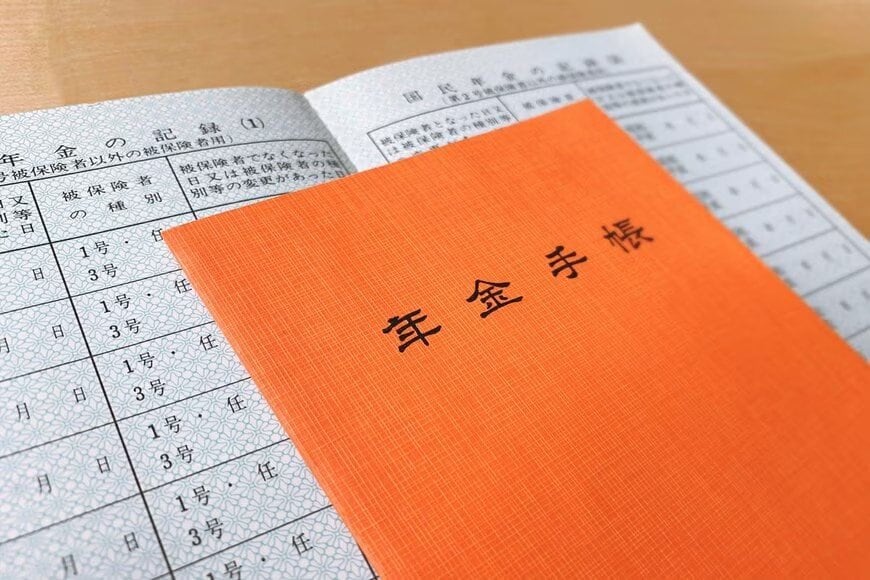 年金の記録(1)
号被保険者以外の被保険者用)
被保険者
の種別
被保険者でなくなっ
日又は被保険者の種
別等の変更があった日
日又
別等
日
日
1号・任
3号
月 日
1号・任
3号
月 日
1号・任
3号
月 日
1号・任
3号
月 日
1号・任
3号
月 日
号・任
国民年金の記録
(第2号被保険者以外の被保険者用
被保険者となった日又
は被保険者の種別等
被保険者
年金手帳